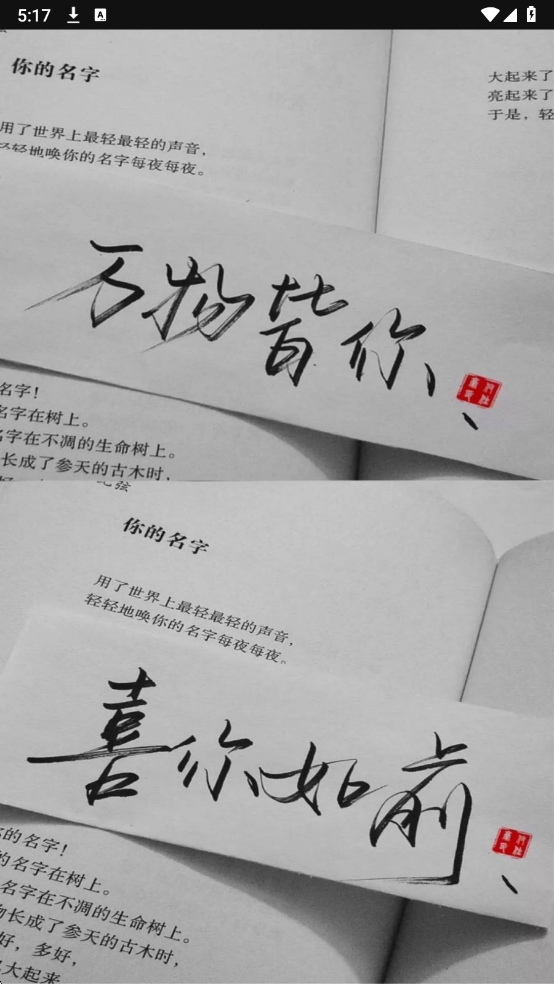 5:17
A
你的名字
大起来了
用了世界上最轻最轻的声音,
亮起来了
轻轻地唤你的名字每夜每夜。
于是，轻
万物皆你、
名字!
名字在树上。
名字在不凋的生命树上。
长成了参天的古木时,
你的名字
用了世界上最轻最轻的声音,
轻轻地唤你的名字每夜每夜。
喜你如前、
的名字!
的名字在树上。
名字在不凋的生命树上。
长成了参天的古木时,
好，多好,
大起来